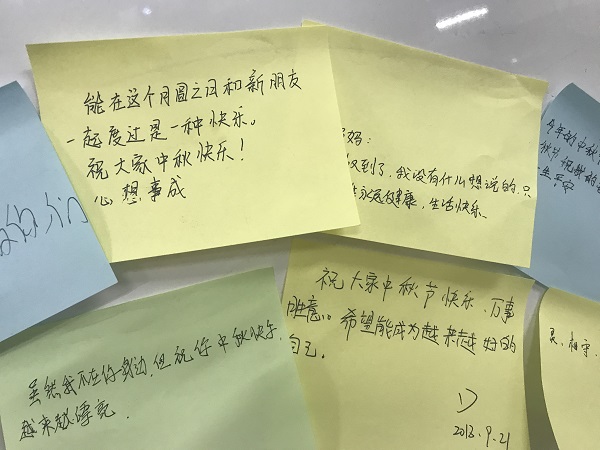 能在这个月圆之日和新朋友
一起度过是一种快乐。
祝大家中秋快乐!
心想事成
妈:
到了,我没有什么想说的.只
永远健康,生活快乐.
今年的中秋
虽然我不在你身边,但祝你中秋快乐.
越来越漂亮.
祝大家中秋节快乐、万事
胜意。希望能成为越来越好的
自己.
2013.9.21